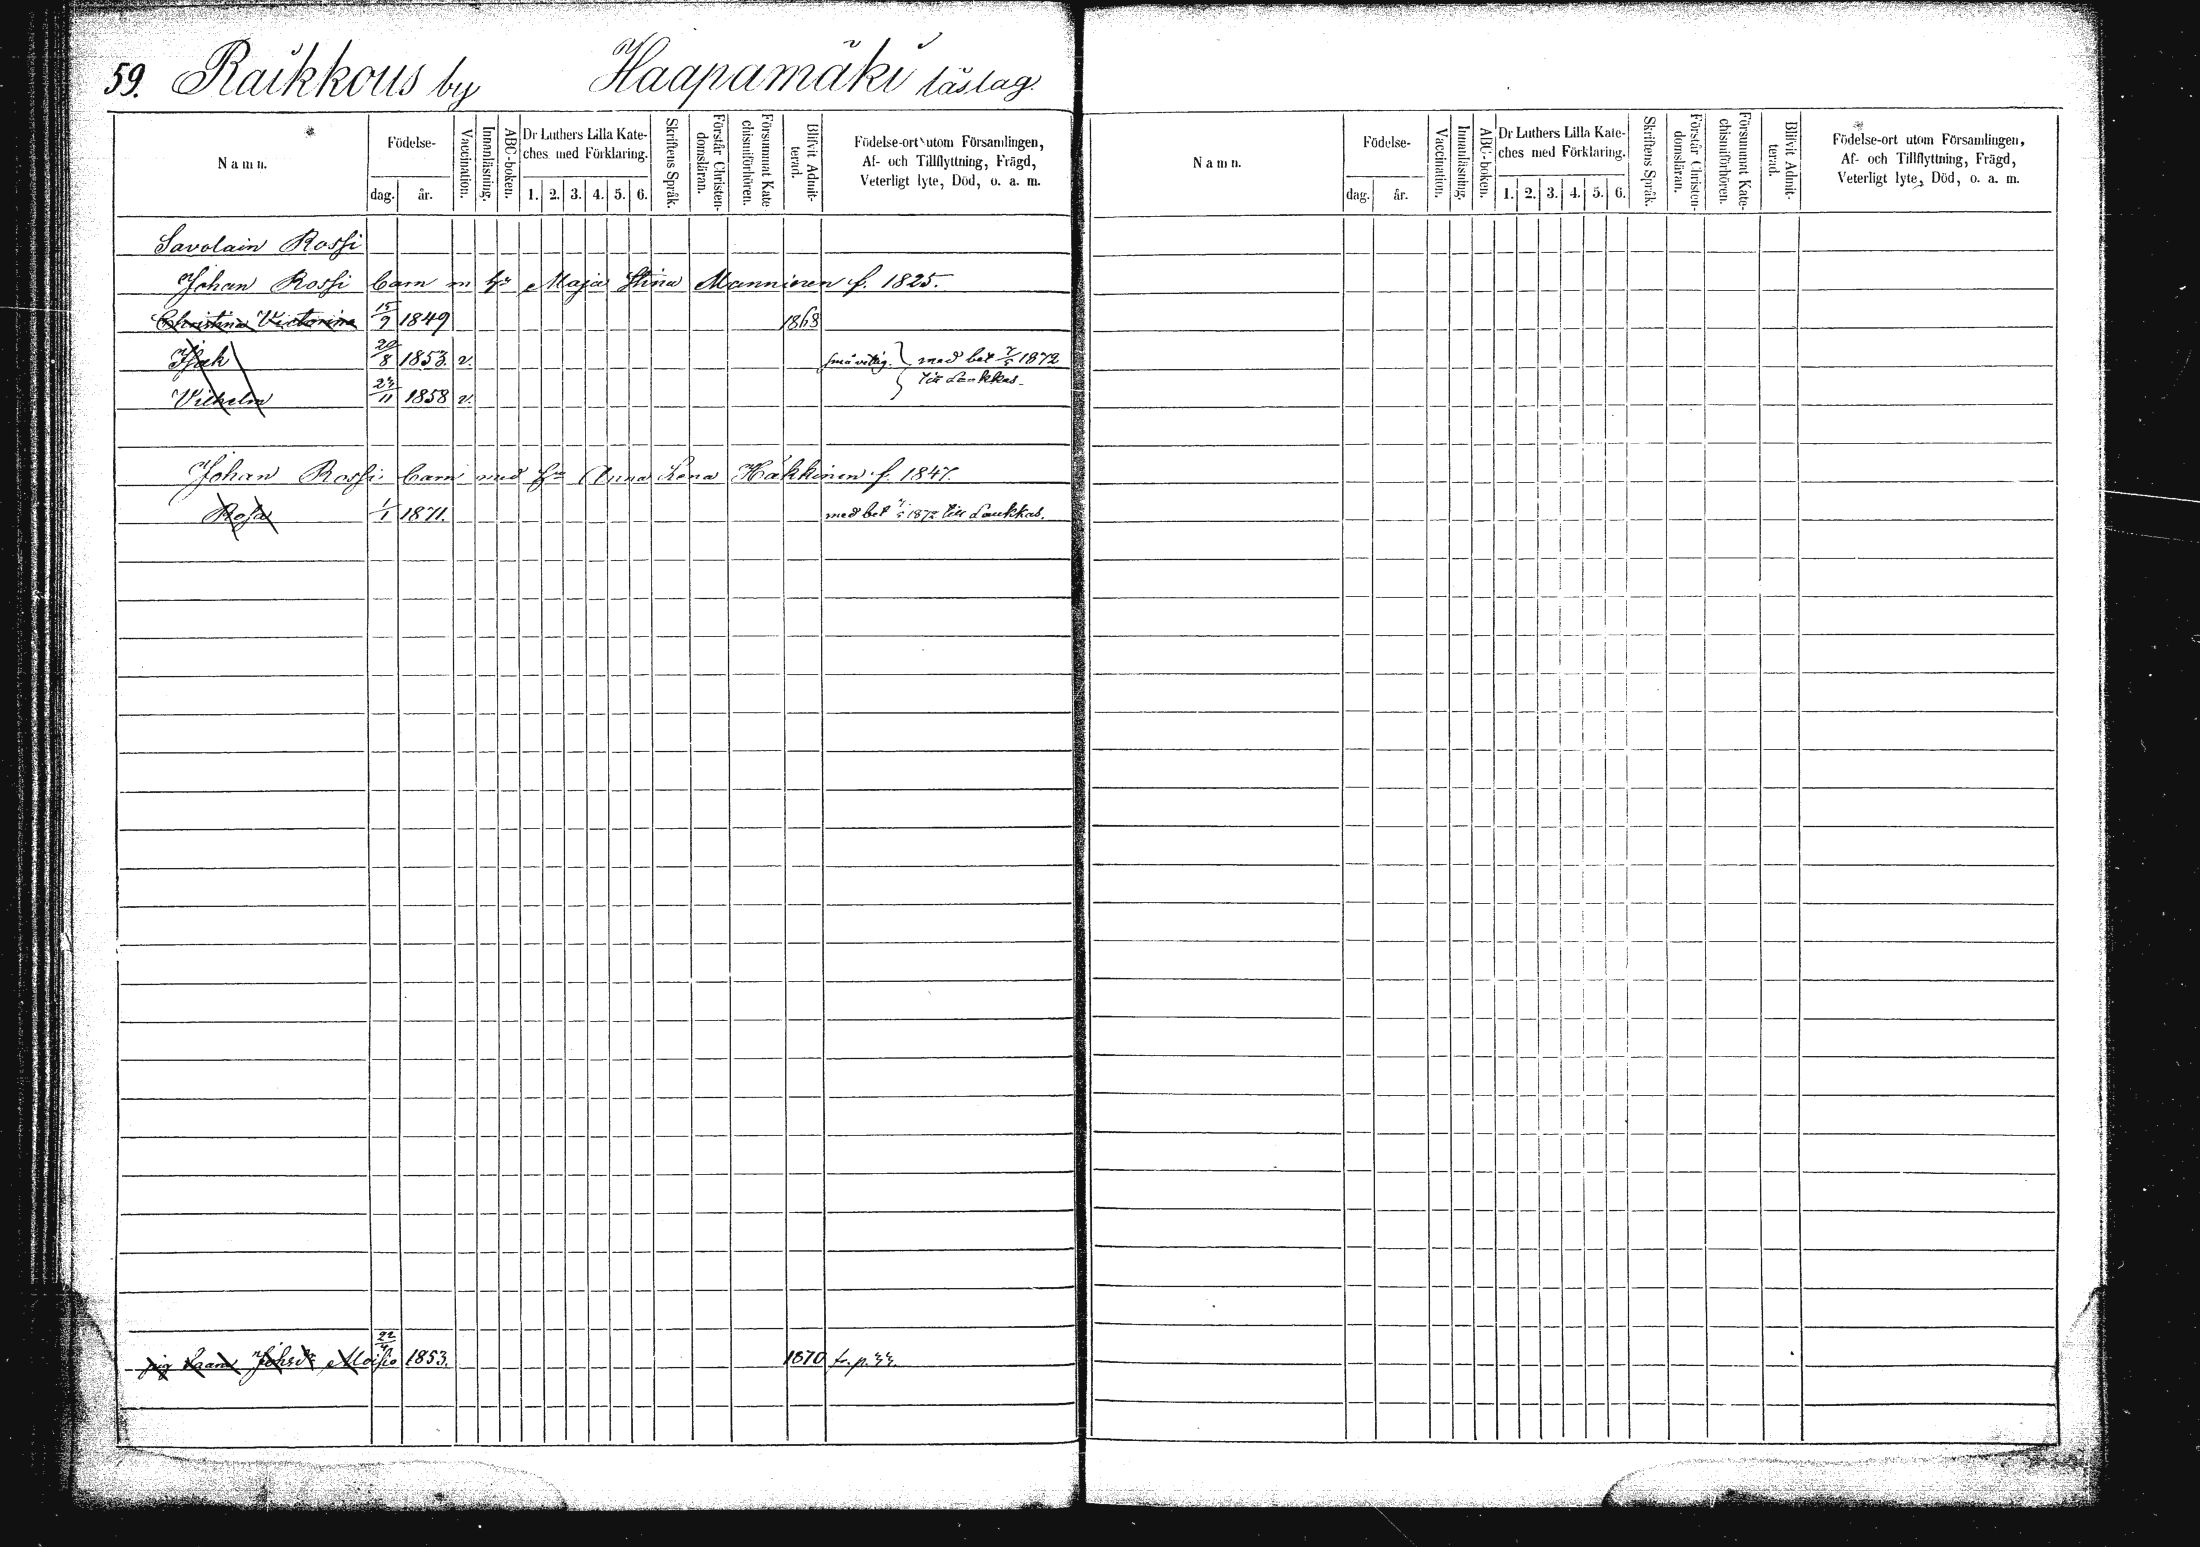 59. Raikkous by Haapamäki läslag.
Namn. Födelse- dag. år. Vaccination. Innanläsning. ABC-boken. Dr Luthers Lilla Kate-ches med Förklaring. 1. 2. 3. 4. 5. 6. Skriftens Språk. Förstår Christen-domsläran. Försummat Kate-chismiförhören. Blifvit Admit-terad. Födelse-ort utom Församlingen, Af- och Tillflyttning, Frägd, Veterligt lyte, Död, o. a. m.
Savolain Rossi
Johan Rossi barn m hu Maja Stina Manninen f. 1825.
Christina Victorina 15/9 1849 1868
Isak 20/8 1853. v. små vettig. med bet 7/5 1872
till Laukkas.
Vilhelm 24/11 1858 v.
Johan Rossi barn med hu Anna Lena Häkkinen f. 1847.
Rosa 1/1 1871. med bet 7/5 1872 till Laukkas.
pig Johsdr Moisio 1853. 1870 fr. p. 33.
Namn. Födelse- dag. år. Vaccination. Innanläsning. ABC-boken. Dr Luthers Lilla Kate-ches med Förklaring. 1. 2. 3. 4. 5. 6. Skriftens Språk. Förstår Christen-domsläran. Försummat Kate-chismiförhören. Blifvit Admit-terad. Födelse-ort utom Församlingen, Af- och Tillflyttning, Frägd, Veterligt lyte, Död, o. a. m.